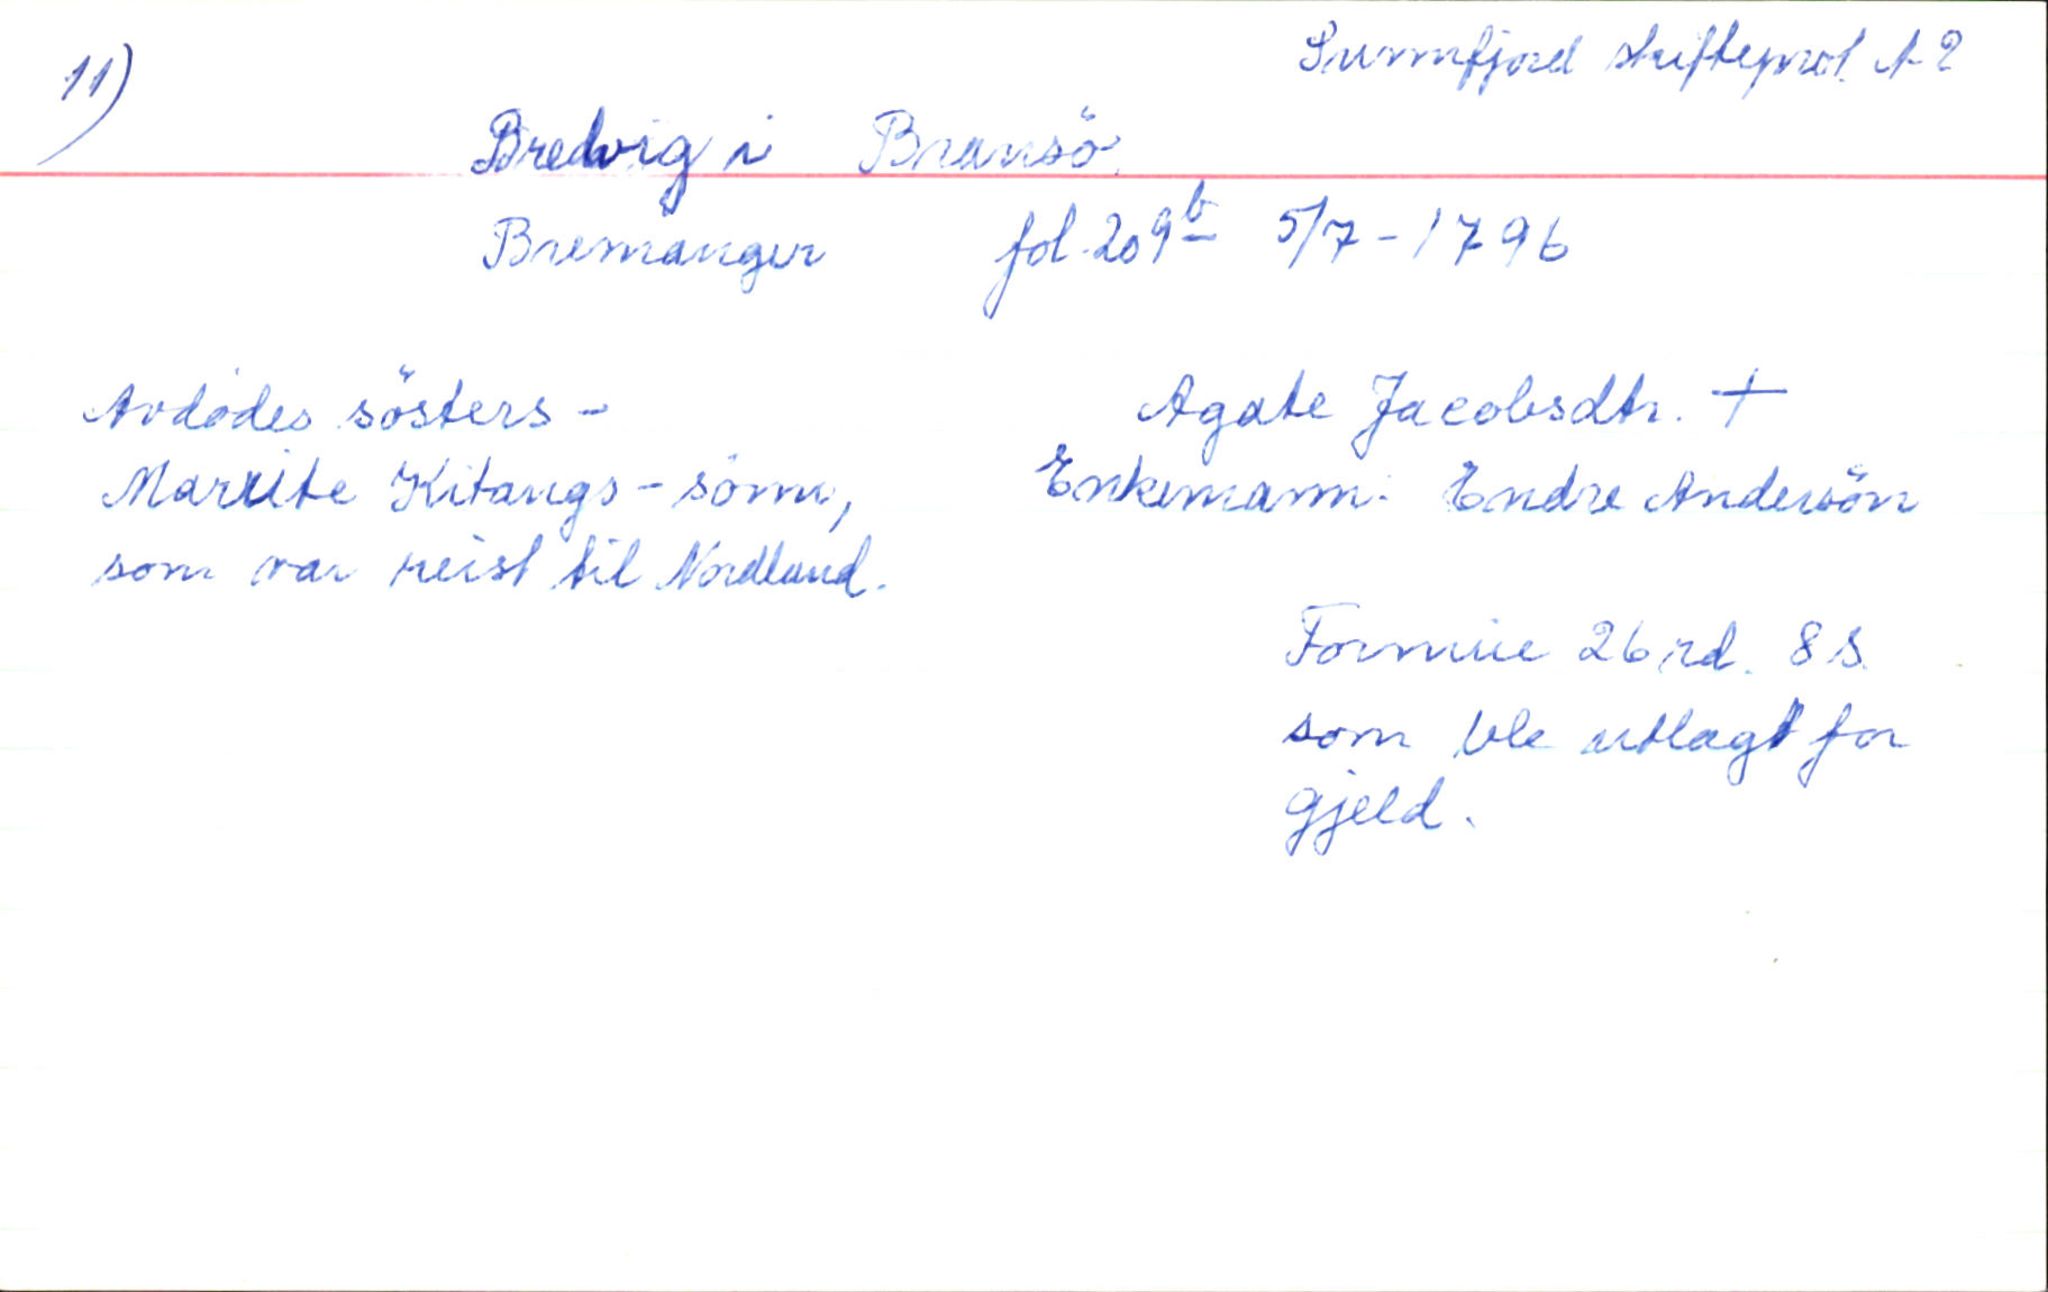 11)
Sunnfjord skifteprot. A 2
Bredvig i Bransö
Bremanger fol. 209b 5/7-1796
Avdödes sösters -
Marite Kitangs - sönn,
som var reist til Nordland.
Agate Jacobsdtr. +
Enkemann: Endre Andersön
Formue 26 rd. 8 s.
som ble utlagt for
gjeld.